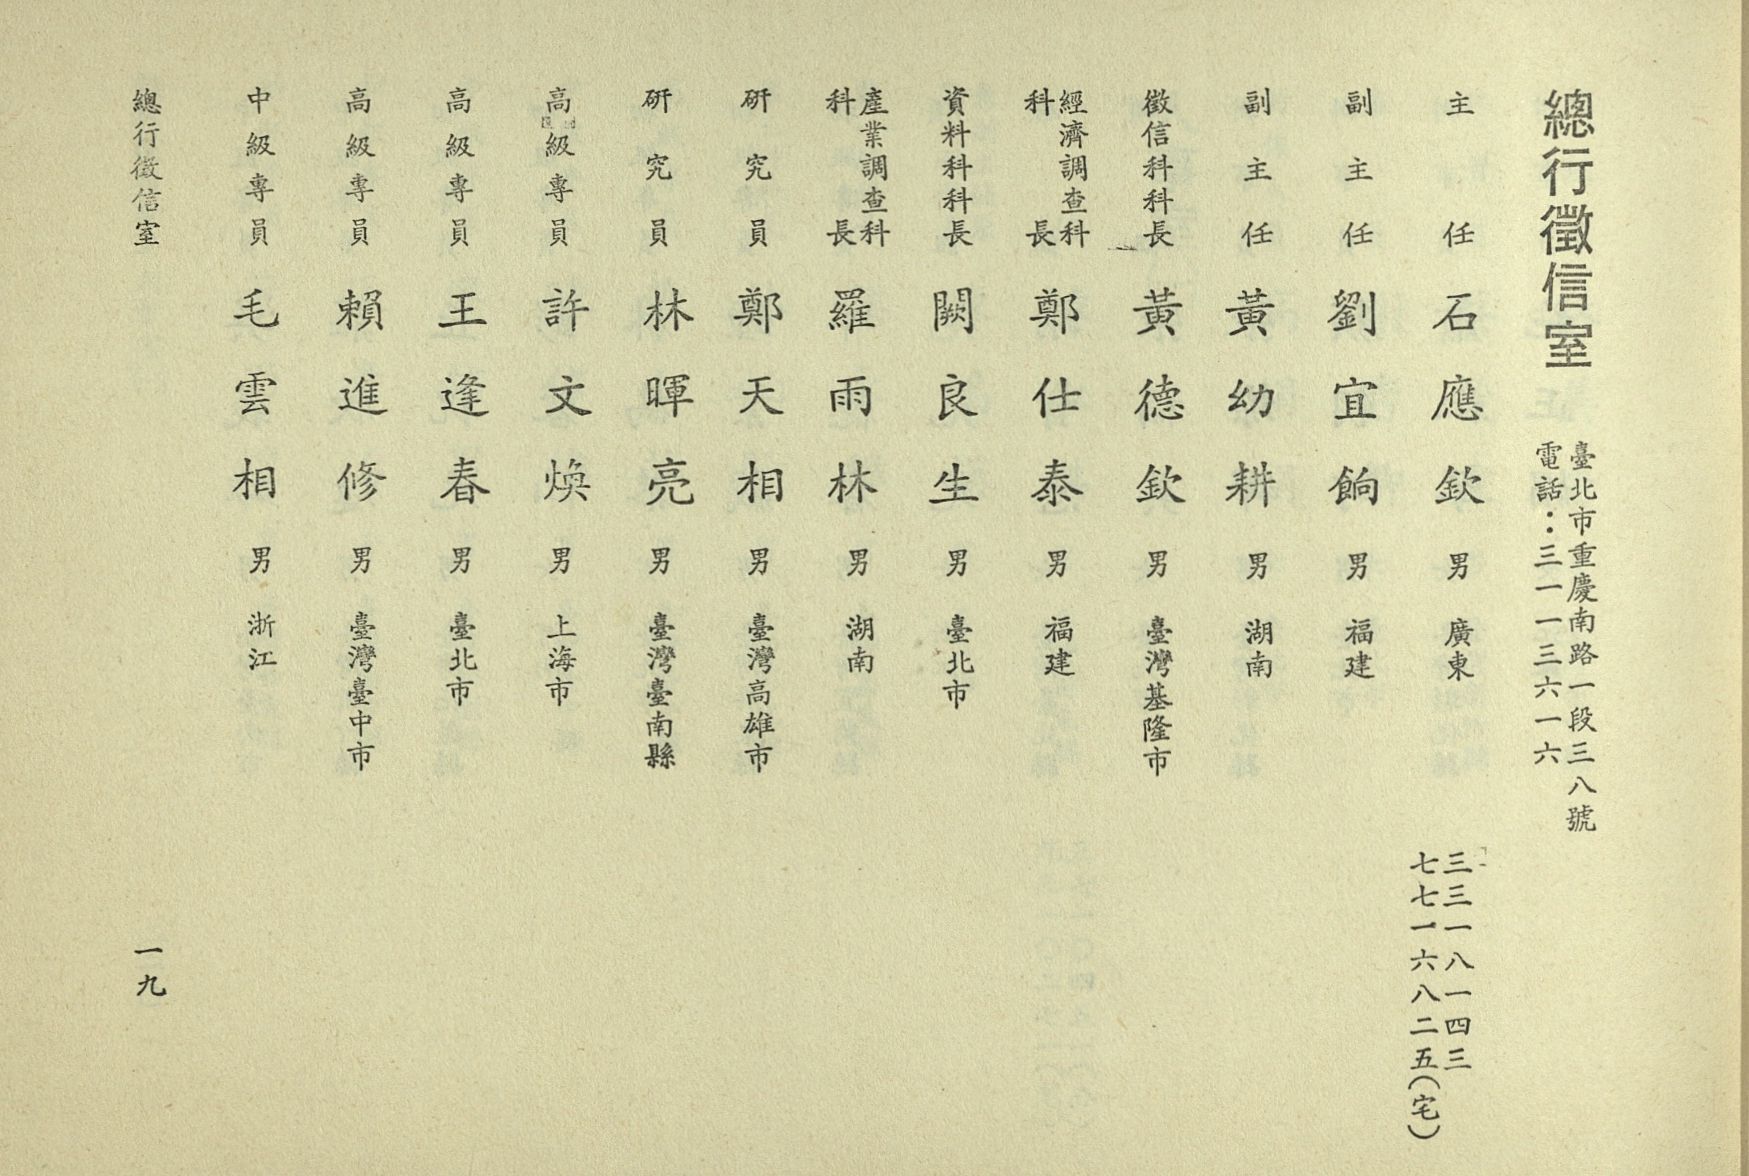 總行徵信室
臺北市重慶南路一段三八號
電話：三一一三六一六
主任 石應欽 男 廣東
三三一八一四三
七七一六八二五(宅)
副主任 劉宜餉 男 福建
副主任 黃幼耕 男 湖南
徵信科科長 黃德欽 男 臺灣基隆市
經濟調查科科長 鄭仕泰 男 福建
資料科科長 闕良生 男 臺北市
產業調查科科長 羅雨林 男 湖南
研究員 鄭天相 男 臺灣高雄市
研究員 林暉亮 男 臺灣臺南縣
高級專員 許文煥 男 上海市
高級專員 王逢春 男 臺北市
高級專員 賴進修 男 臺灣臺中市
中級專員 毛雲相 男 浙江
總行徵信室
一九